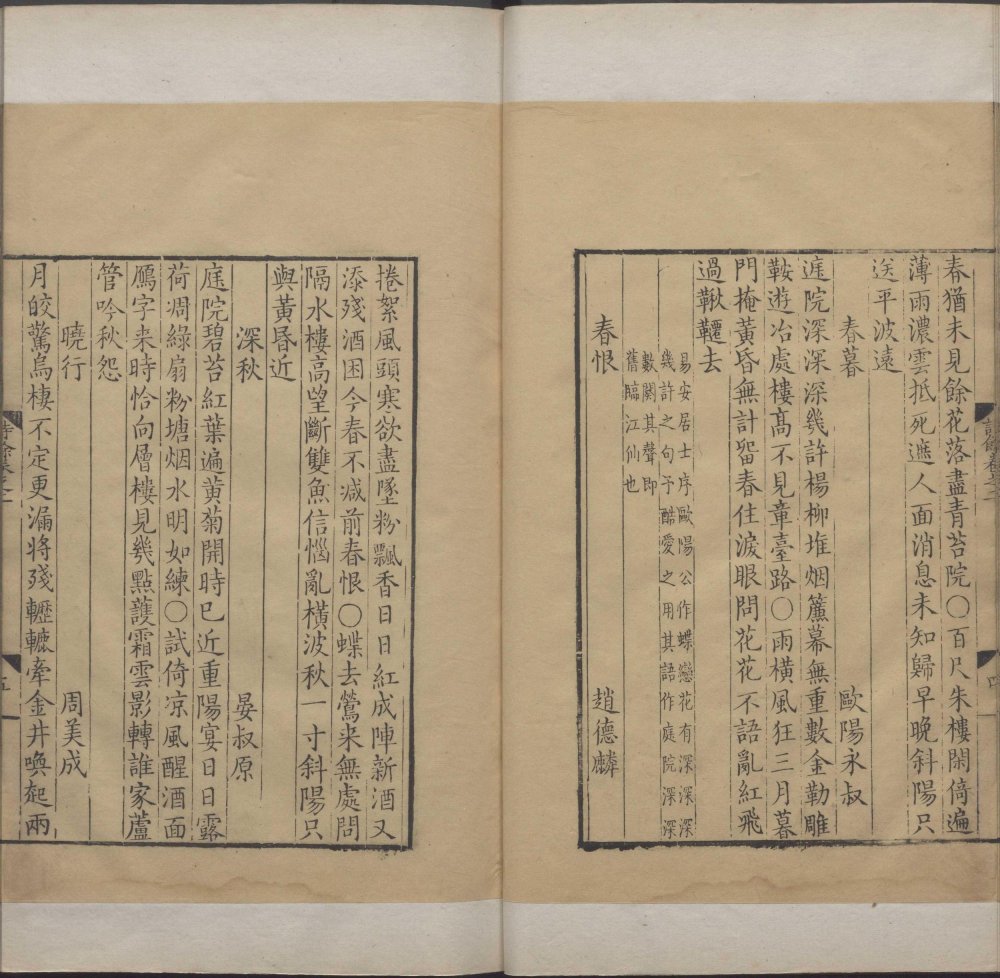 春猶未見餘花落盡青苔院○百尺朱樓閑倚遍
薄雨濃雲抵死遮人面消息未知歸早晚斜陽只
送平波遠
春暮 歐陽永叔
庭院深深深幾許楊柳堆烟簾幕無重數金勒雕
鞍遊冶處樓高不見章臺路○雨橫風狂三月暮
門掩黃昏無計留春住淚眼問花花不語亂紅飛
過鞦韆去
易安居士序歐陽公作蝶戀花有深深深
幾許之句予酷愛之用其語作庭院深深
數闋其聲即
舊臨江仙也
春恨 趙德麟
捲絮風頭寒欲盡墜粉飄香日日紅成陣新酒又
添殘酒困今春不減前春恨○蝶去鶯来無處問
隔水樓高望斷雙魚信惱亂橫波秋一寸斜陽只
與黃昏近
深秋 晏叔原
庭院碧苔紅葉遍黃菊開時已近重陽宴日日露
荷凋綠扇粉塘烟水明如練○試倚涼風醒酒面
鴈字来時恰向層樓見幾點護霜雲影轉誰家蘆
管吟秋怨
曉行 周美成
月皎驚烏棲不定更漏將殘轣轆牽金井喚起兩
五